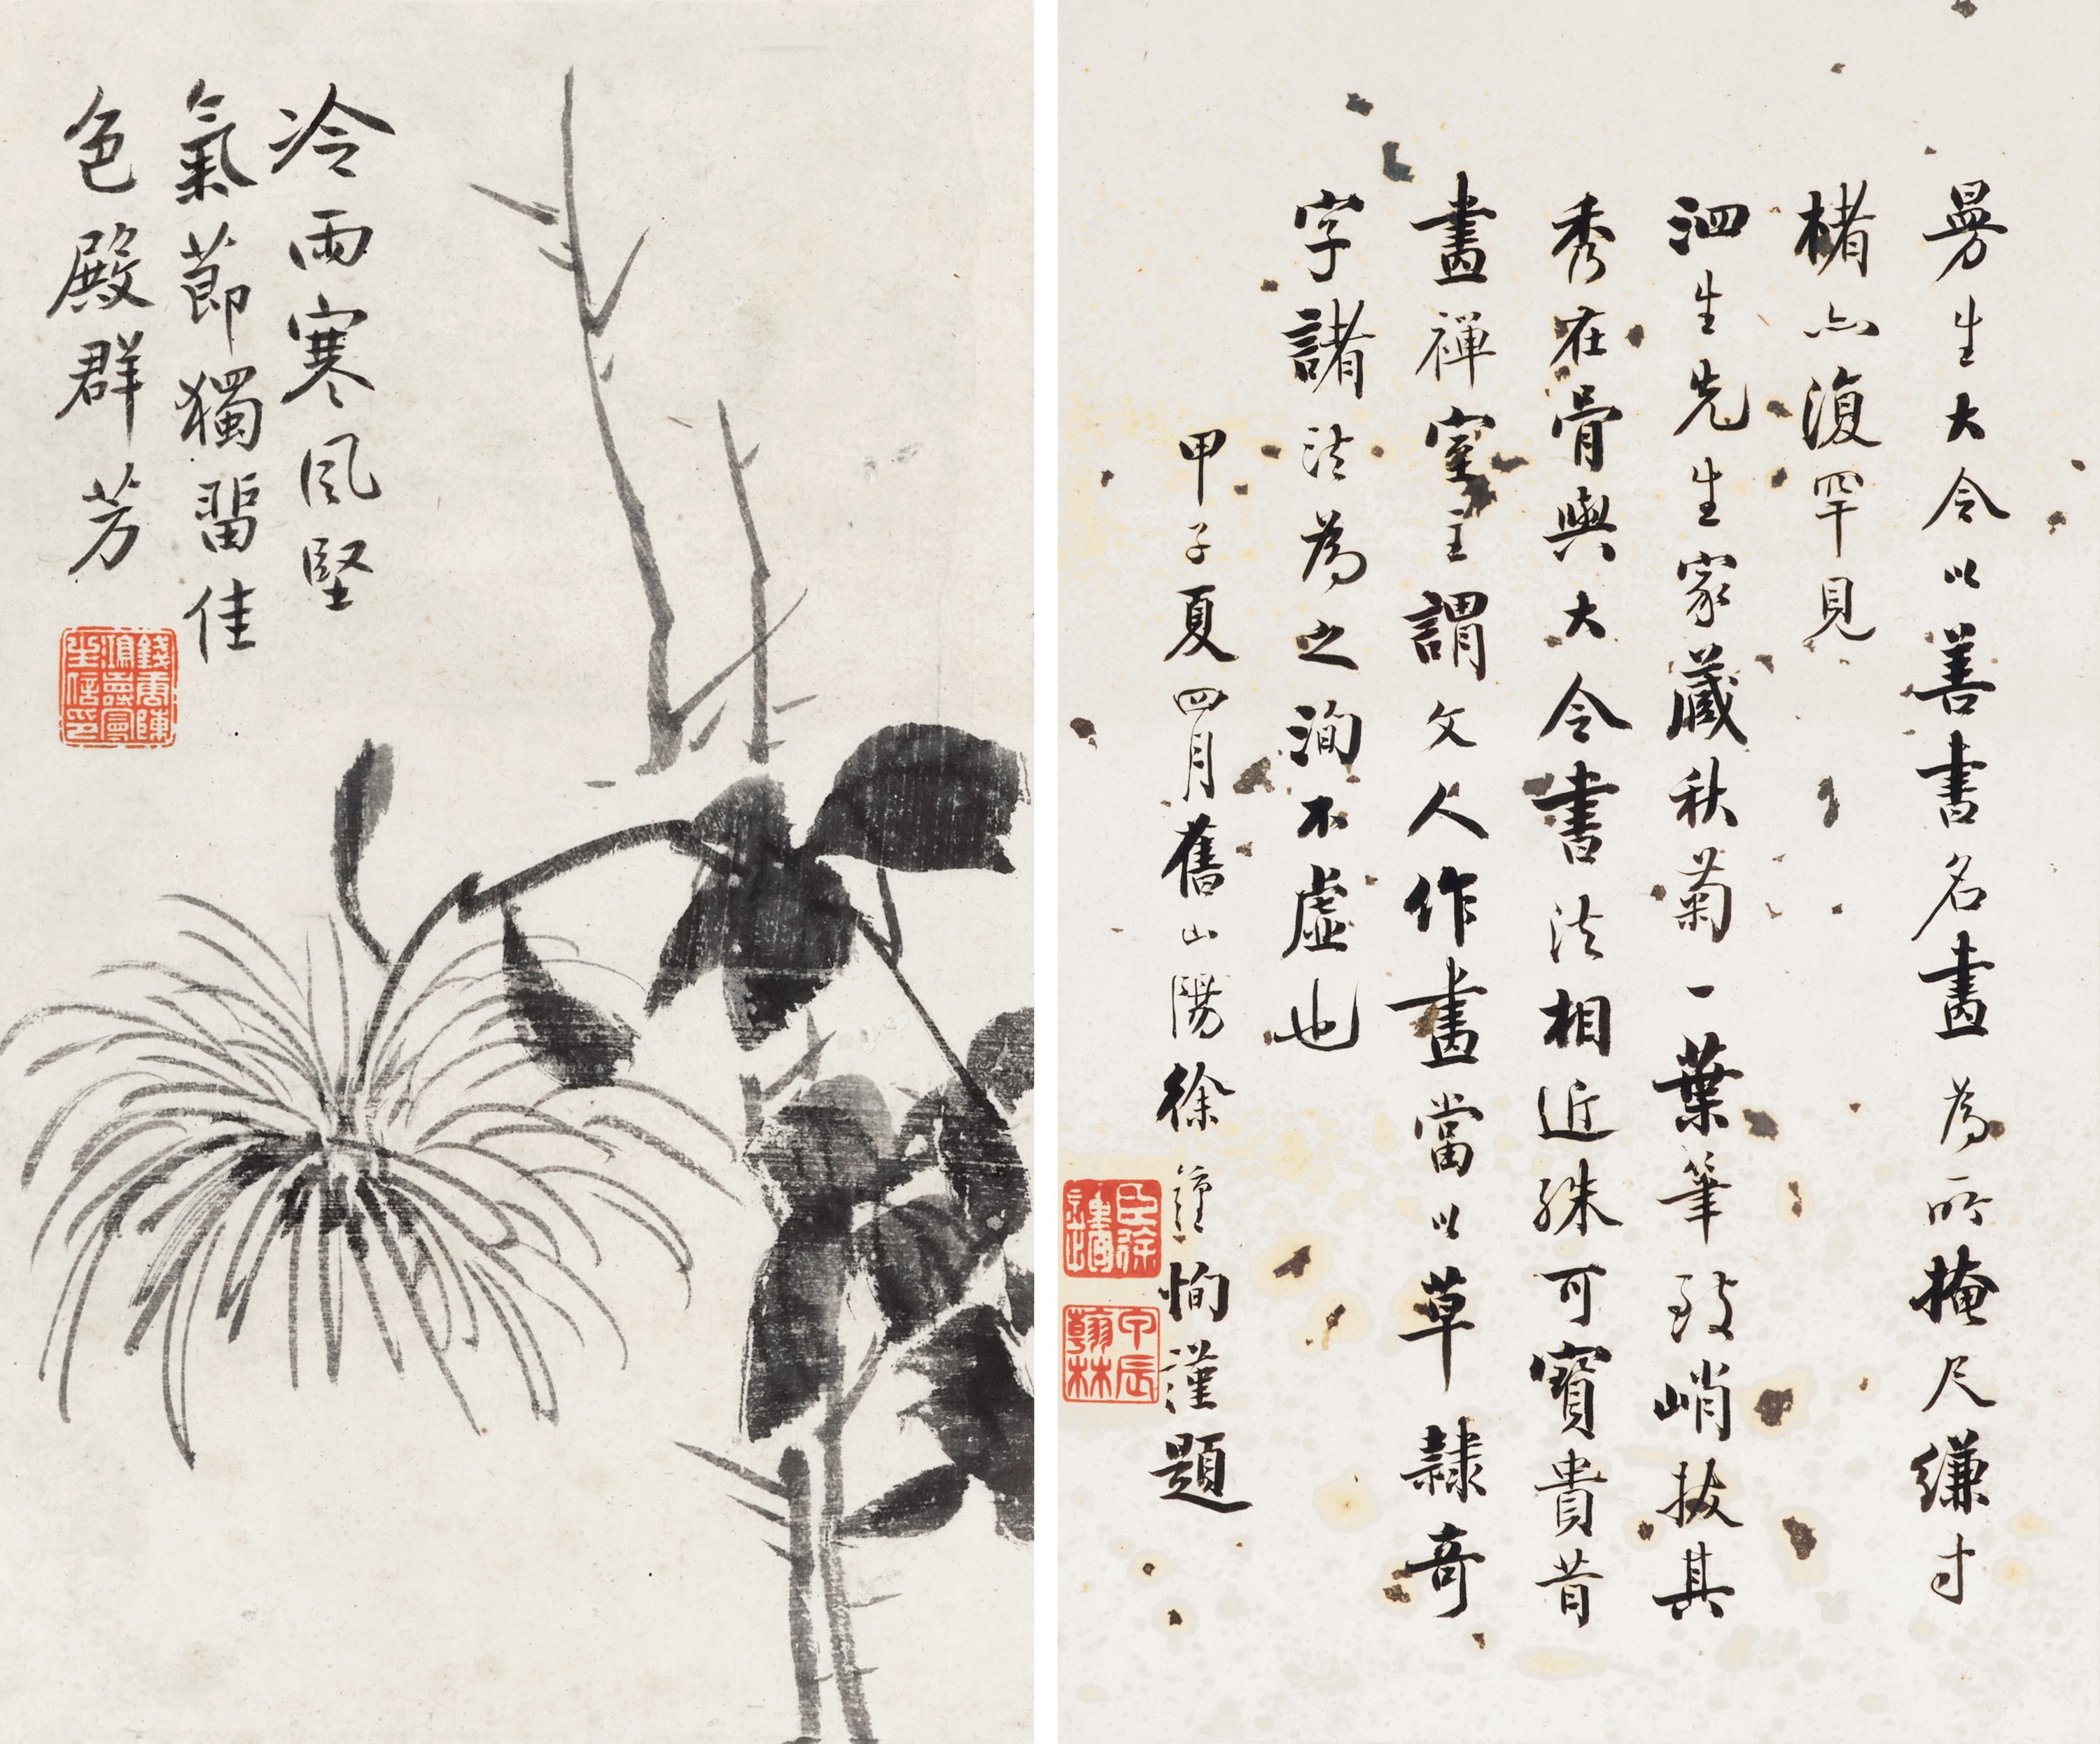 冷雨寒風堅
氣節獨畱佳
色殿群芳
錢唐陳
鴻壽曼
生信印
曼生大令以善書名畫為所掩尺縑寸
楮亦復罕見
泗生先生家藏秋菊一葉筆致峭拔其
秀在骨與大令書法相近殊可寶貴昔
畫禪室主謂文人作畫當以草隸奇
字諸法為之洵不虛也
甲子夏四月舊山陽徐鍾恂謹題
臣徐
甲辰
翰林